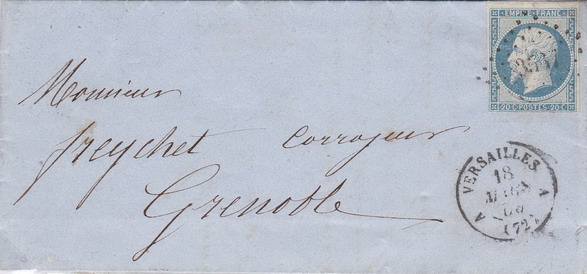 EMPIRE FRANC
20 C POSTES 20 C
Monsieur
freychet corroyeur
Grenoble
A VERSAILLES A
18
MARS
(72)